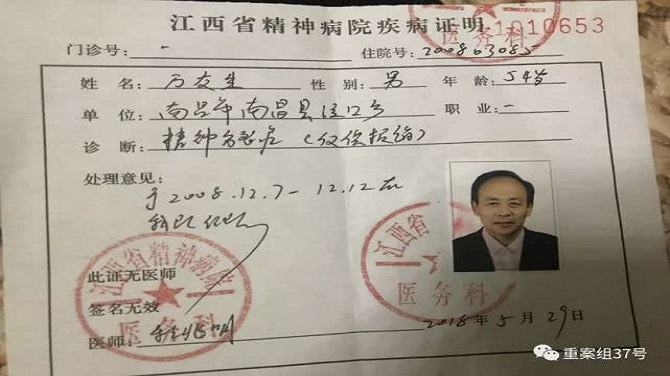 江西省精神病院疾病证明
1010653
医务科
门诊号 - 住院号:200803085
姓名:万友生 性别:男 年龄:54岁
单位:南昌市南昌县泾口乡 职业:-
诊断:精神分裂症(仅供报销)
处理意见:
于2008.12.7-12.12在
我院住院
江西省精神病院
医务科
江西省
医务科
此证无医师
签名无效
医师:
2018年5月29日
重案组37号